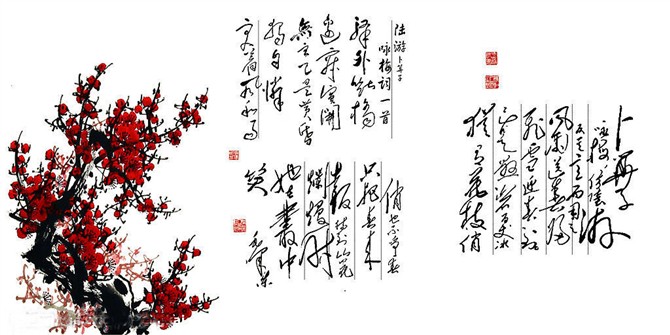 卜算子
咏梅
反其意而用之
风雨送春归
飞雪迎春到
已是悬崖百丈冰
犹有花枝俏
俏也不争春
只把春来
报 待到山花
烂熳时
她在丛中
笑
毛泽东
陆游卜算子
咏梅词一首
驿外断桥
边 寂寞开
无主 已是黄昏
独自
更着风和雨